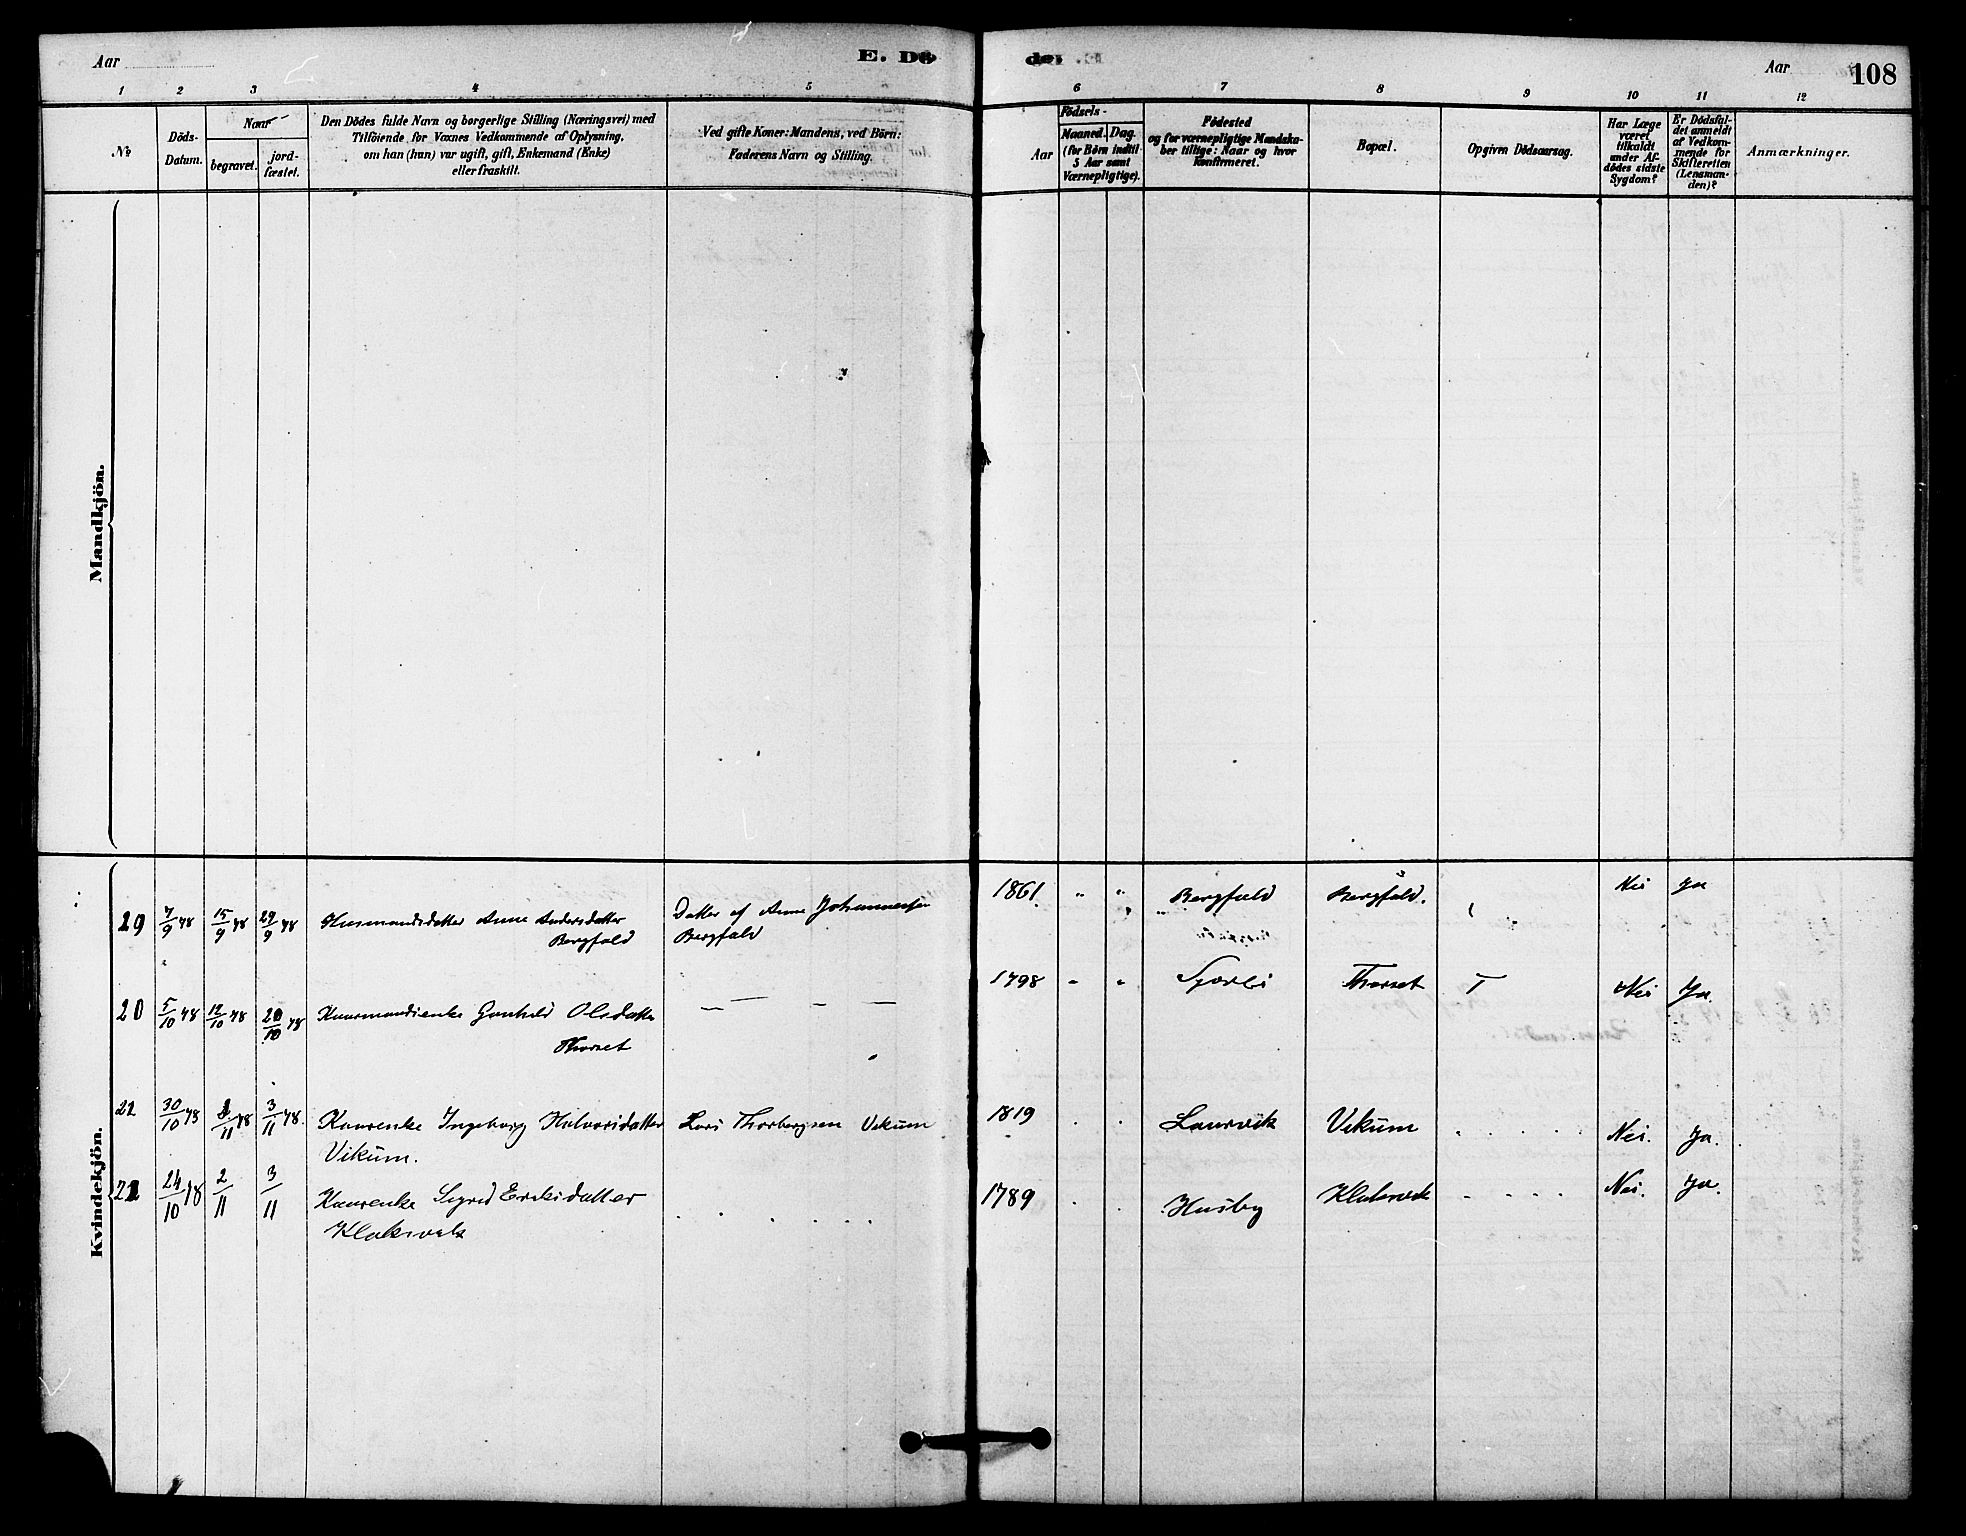 Aar
E. Dö
der
Aar
108
1 2 3 4 5 6 7 8 9 10 11 12
No
Döds-Datum.
Naar
begravet.
jord-fæstet.
Den Dödes fulde Navn og borgerlige Stilling (Næringsvei) med
Tilföiende for Voxnes Vedkommende af Oplysning,
om han (hun) var ugift, gift, Enkemand (Enke)
eller fraskilt.
Ved gifte Koner: Mandens, ved Börn:
Faderens Navn og Stilling.
Födsels-
Aar
Maaned. Dag.
(for Börn indtil
5 Aar samt
Værnepligtige).
Födested
og for værnepligtige Mandska-
ber tillige: Naar og hvor
konfirmeret.
Bopæl.
Opgiven Dödsaarsag.
Har Læge
været
tilkaldt
under Af-
dödes sidste
Sygdom?
Er Dödsfal-
det anmeldt
af Vedkom-
mende for
Skifteretten
(Lensman-
den)?
Anmærkninger.
Mandkjön.
Kvindekjön.
19 7/9 78 15/9 78 29/9 78 Husmandsdatter Anne Andersdatter Datter af Johannessen 1861 " " Bergfald Bergfald. Nei Ja
Bergfald Bergfald
20 5/10 78 12/10 78 20/10 78 Gunhild Olsdatter — — — 1798 " " Thorset Nei Ja.
Thorset
21 30/10 78 /11 78 3/11 78. Kaarenke Ingeborg Halvorsdatter Lars Thorbergsen Vikum 1819 . . Laurvik Vikum . . . . . Nei. Ja.
Vikum.
22 24/10 78 2/11 3/11 Kaarenke Sigrid Eriksdatter . . . . . . 1789 . . Husby Klaksvik . . . . Nei. Ja.
Klaksvik